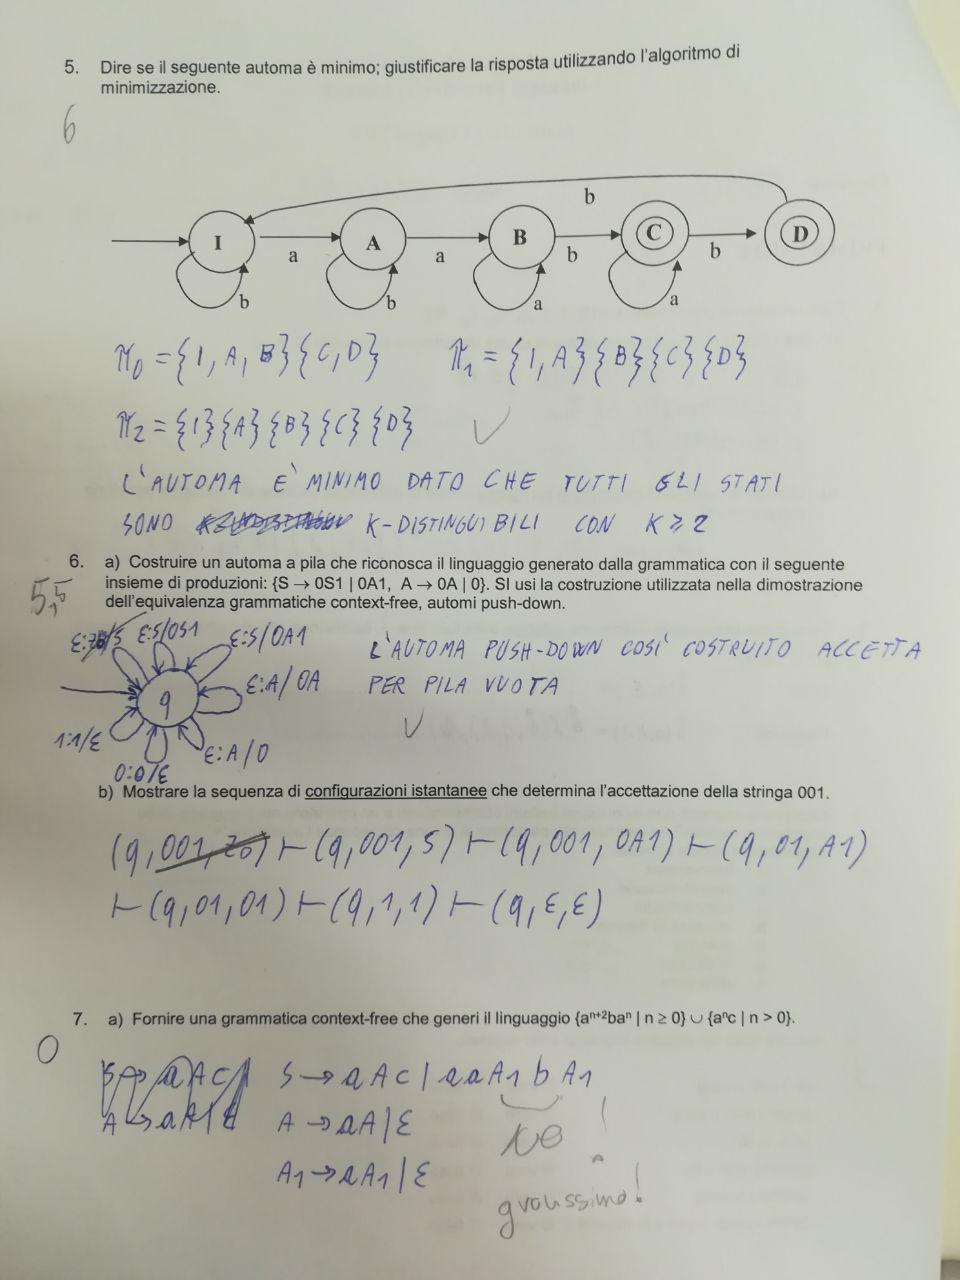 5. Dire se il seguente automa è minimo; giustificare la risposta utilizzando l'algoritmo di
minimizzazione.
6
b
I a A a B b C b D
b b a a
π₀ = {I, A, B}{C, D} π₁ = {I, A}{B}{C}{D}
π₂ = {I}{A}{B}{C}{D} ✓
L'AUTOMA E' MINIMO DATO CHE TUTTI GLI STATI
SONO K-DISTINGUIBILI CON K ≥ 2
6. a) Costruire un automa a pila che riconosca il linguaggio generato dalla grammatica con il seguente
5,5 insieme di produzioni: {S → 0S1 | 0A1, A → 0A | 0}. SI usi la costruzione utilizzata nella dimostrazione
dell'equivalenza grammatiche context-free, automi push-down.
ε:S/0S1 ε:S/0A1
L'AUTOMA PUSH-DOWN COSI' COSTRUITO ACCETTA
q ε:A/0A PER PILA VUOTA
✓
1:1/ε 0:0/ε ε:A/0
b) Mostrare la sequenza di configurazioni istantanee che determina l'accettazione della stringa 001.
(q, 001, Z₀) ⊢ (q, 001, S) ⊢ (q, 001, 0A1) ⊢ (q, 01, A1)
⊢ (q, 01, 01) ⊢ (q, 1, 1) ⊢ (q, ε, ε)
7. a) Fornire una grammatica context-free che generi il linguaggio {aⁿ⁺²baⁿ | n ≥ 0} ∪ {aⁿc | n > 0}.
0
S → aAc | S → aAc | aaA₁bA₁
A → aA | ε A → aA | ε NO!
A₁ → aA₁ | ε
gravissimo!